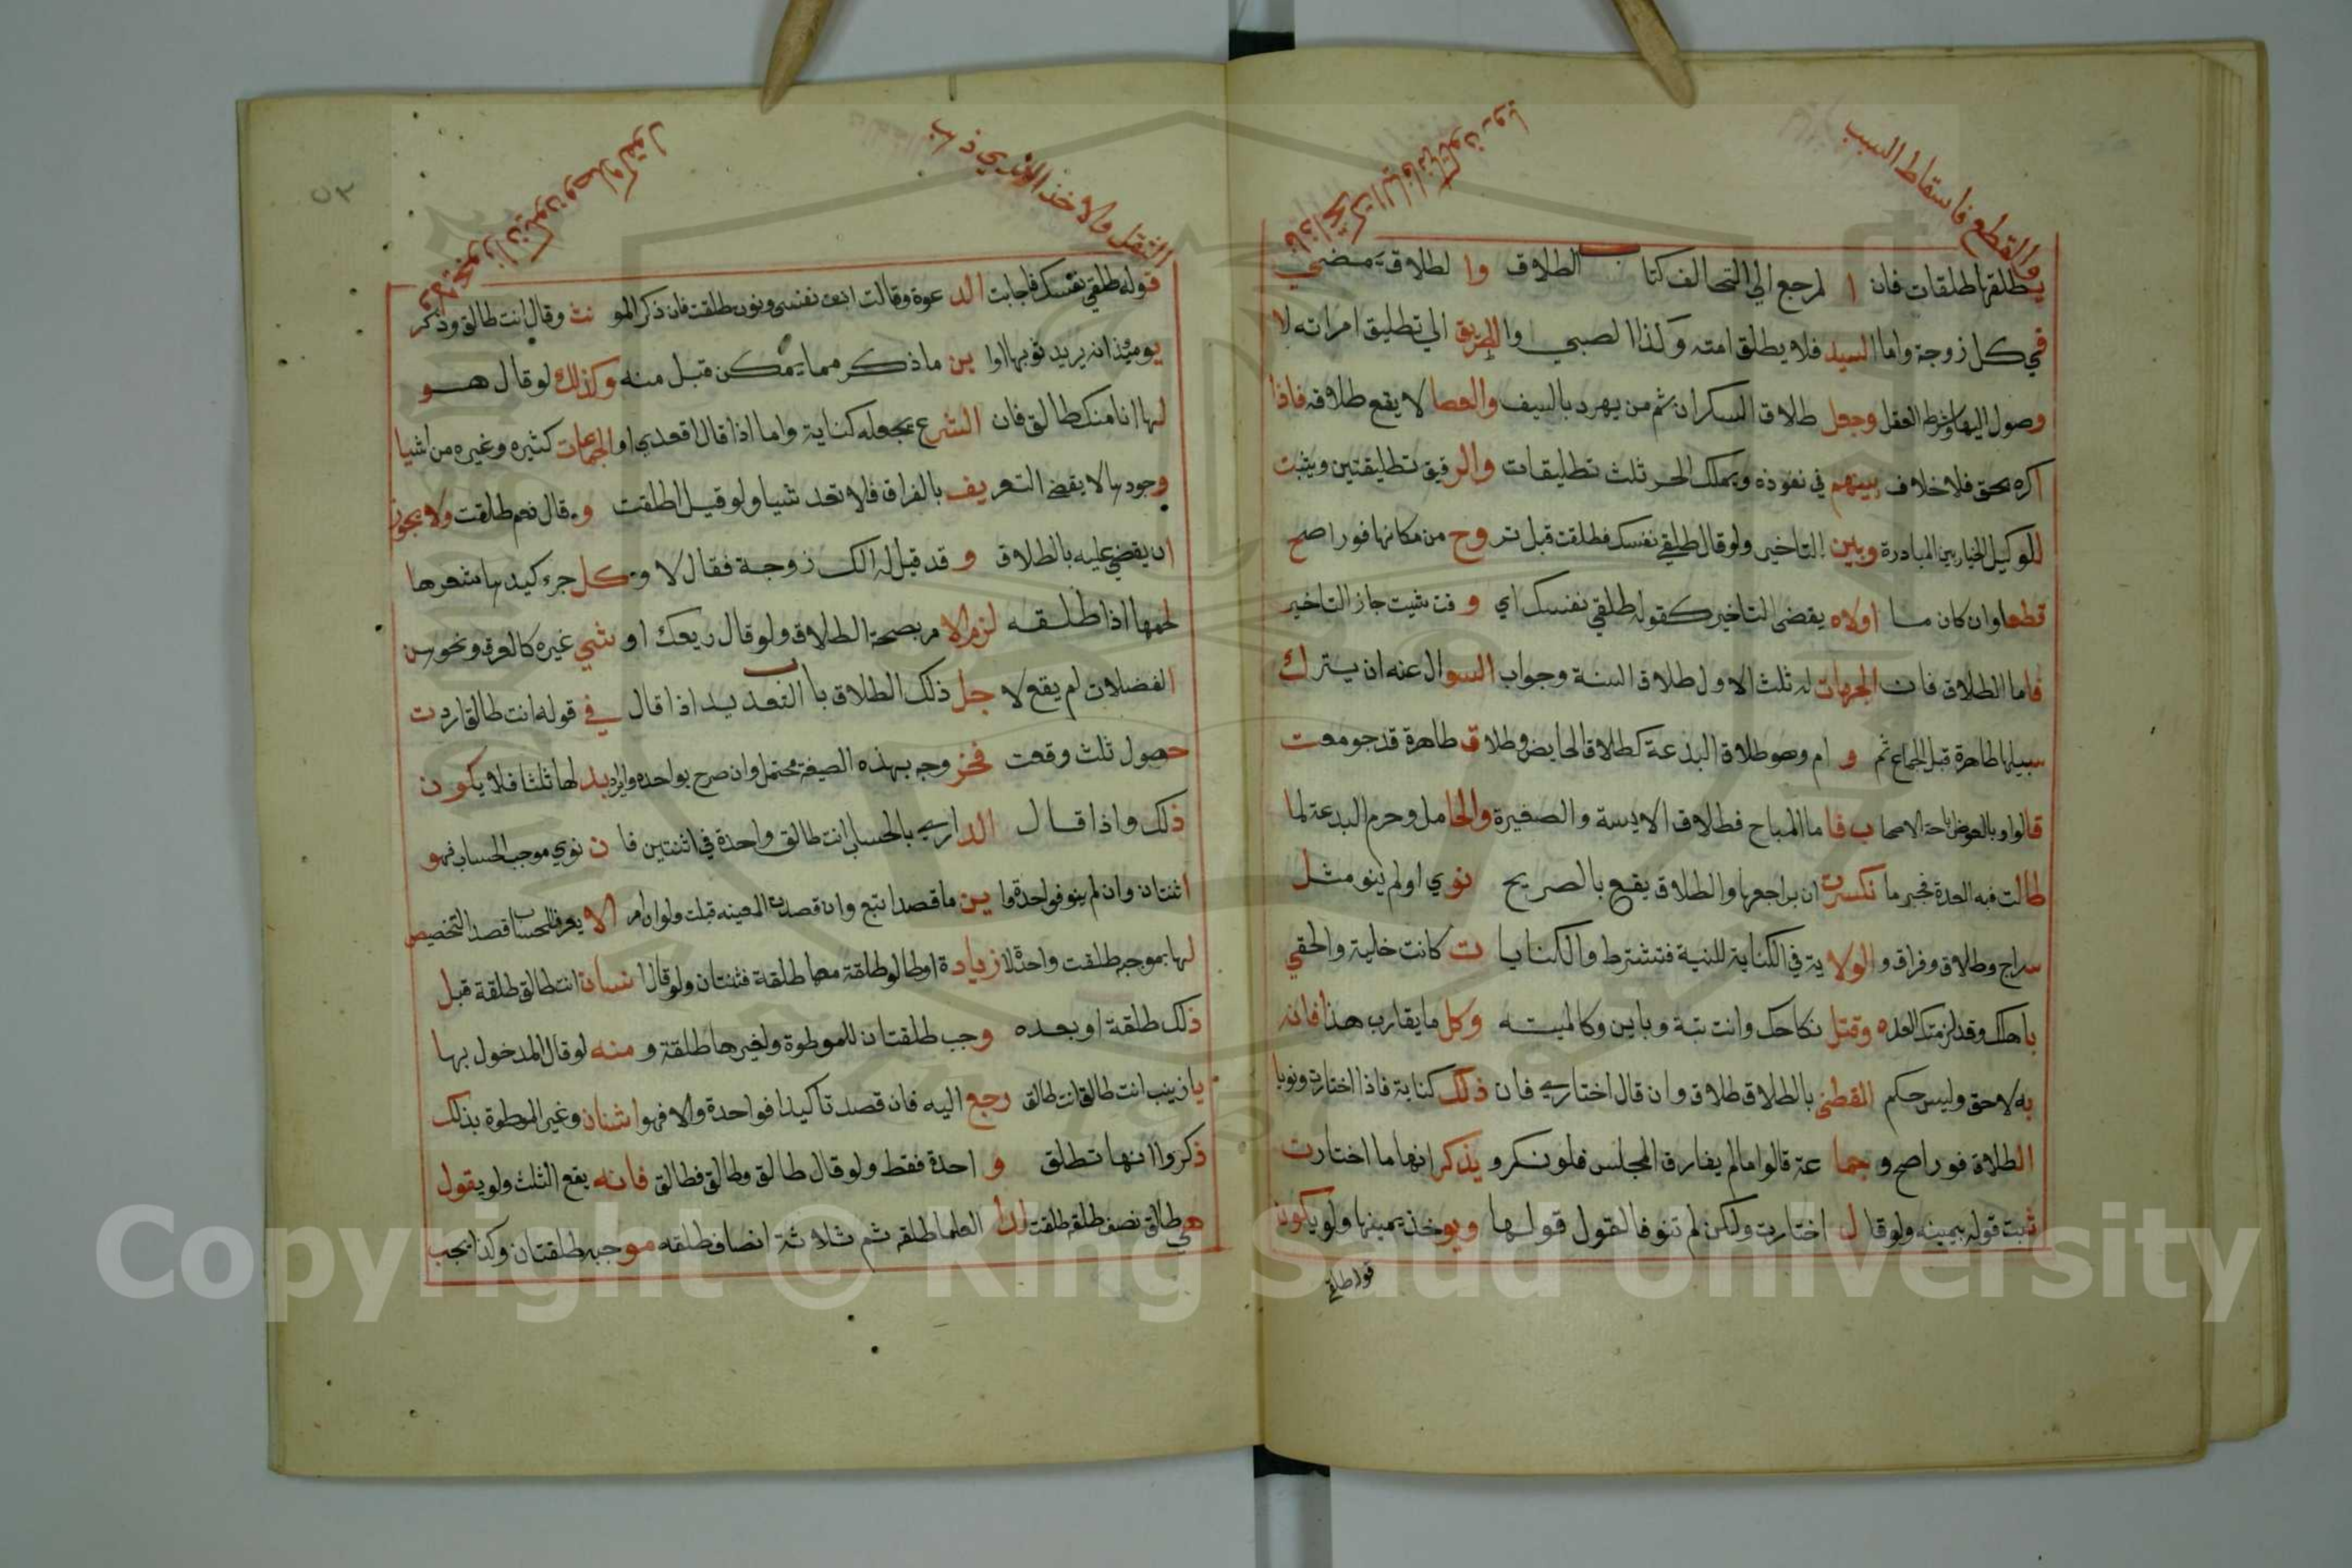 والقطع فاسقاط السبب
يطلقها طلقات فان ا لم رجع الي التحالف كتاب الطلاق وا لطلاق يمضي
في كل زوجة واما السيد فلا يطلق امته وكذا الصبي والطريق الي تطليق امراته لا
وصول اليها وشرط العقل وجعل طلاق السكران ثم من يهدد بالسيف والعصا لا يقع طلاقه فاذا
اكره بحق فلا خلاف بينهم في نفوذه ويملك الحر ثلث تطليقات والرقيق تطليقتين ويثبت
للوكيل الخيار بين المبادرة وبين التاخير ولو قال طلقي نفسك فطلقت قبل تروح من مكانها فورا صح
قطعا وان كان ما اولاه يقضي التاخير كقوله طلقي نفسك اي وقت شيت جاز التاخير
فاما الطلاق فان الجهات له ثلث الاول طلاق السنة وجواب السوال عنه ان يترك
سبيلها طاهرة قبل الجماع ثم و ام وهو طلاق البدعة كطلاق الحايض وطلاق طاهرة قد جومعت
قالوا وبالعوض باحة الاصحاب فاما المباح فطلاق الايسة والصغيرة والحامل وحرم البدعة لما
طالت فيه العدة فجبر ما نكسرت ان يراجعها والطلاق يقع بالصريح نوي او لم ينو مثل
سراح وطلاق وفراق و الولاية في الكناية للنية فتشترط والكنايات كانت خلية والحقي
باهلك وقد لزمتك العده وقتل نكاحك وانت بتة وباين وكالميته وكل ما يقارب هذا فانه
به لاحق وليس حكم المقطني بالطلاق طلاق وان قال اختاري فان ذلك كناية فاذا اختارت ونويا
الطلاق فورا صح و جماعة قالوا ما لم يفارق المجلس فلو نكرو يذكر انها ما اختارت
ثبت قوله بيمينه ولو قال اختارت ولكن لم تنو فالقول قولها ويوخذ يمينها ولو يكون
قوله طلقي
النقل والاخذ الذي ذهب
قوله طلقي نفسك فاجابت الدعوة وقالت ابنت نفسي ونوت طلقت فان ذكر المونث وقال انت طالق وذكر
يوميذ انه يريد ثوبها اوا ين ما ذكر مما يمكن قبل منه وكذلك لو قال هو
لها انا منك طالق فان الشرع يجعله كناية واما اذا قال اقعدي او الجماعات كثيره وغيره من اشيا
وجودها لا يقضي التعريف بالفراق فلا تعد شيا ولو قيل اطلقت و قال نعم طلقت ولا يجوز
ان يقضي عليه بالطلاق و قد قيل له الك زوجة فقال لا وكل جزء كيدها شعرها
لحمها اذا طلقه لزم الامر بصحة الطلاق ولو قال ريعك او شي غيره كالعرق ونحو من
الفضلات لم يقع لا جل ذلك الطلاق باب التعديد اذا قال في قوله انت طالق اردت
حصول ثلث وقعت فخروجه بهذه الصيغة محتمل وان صرح بواحده وايراد بدلها ثلثا فلا يكون
ذلك واذا قال الداري بالحساب انت طالق واحدة في اثنتين فان نوي موجب الحساب فهو
اثنتان وان لم ينو فواحدة واين ما قصد اتبع وان قصدت المعينه قبلت ولو ان امر الا يعرف الحساب قصد التخصيص
لها بموجبه طلقت واحدة لا زيادة او طالو طلقة معها طلقة فثنتان ولو قال انسان انت طالق طلقة قبل
ذلك طلقة او بعده وجب طلقتان للموطوة ولغيرها طلقة و منه لو قال المدخول بها
يا زينب انت طالق انت طالق رجع اليه فان قصد تاكيدا فواحدة والا فهو اثنان وغير الموطوة بذلك
ذكروا انها تطلق و احدة فقط ولو قال طالق وطالق فطالق فانه يقع الثلث ولو يقول
هي طالق نصف طلقة طلقت لدا العلما طلقه ثم ثلاثة انصاف طلقه موجبه طلقتان وكذا يجب